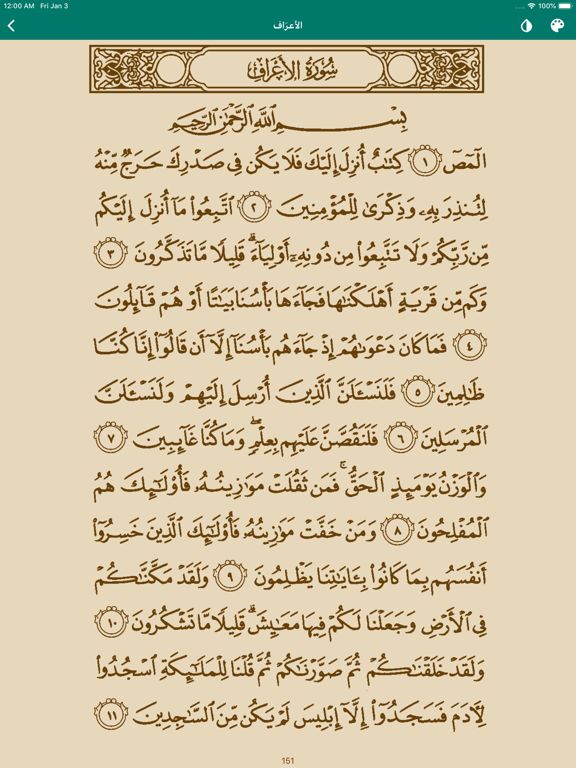 12:00 AM Fri Jan 3 100%
الأعراف
سُورَةُ الأَعْرَافِ
بِسْمِ ٱللَّهِ ٱلرَّحْمَٰنِ ٱلرَّحِيمِ
الٓمٓصٓ ١ كِتَٰبٌ أُنزِلَ إِلَيْكَ فَلَا يَكُن فِى صَدْرِكَ حَرَجٌ مِّنْهُ
لِتُنذِرَ بِهِۦ وَذِكْرَىٰ لِلْمُؤْمِنِينَ ٢ ٱتَّبِعُوا۟ مَآ أُنزِلَ إِلَيْكُم
مِّن رَّبِّكُمْ وَلَا تَتَّبِعُوا۟ مِن دُونِهِۦٓ أَوْلِيَآءَ ۗ قَلِيلًا مَّا تَذَكَّرُونَ ٣
وَكَم مِّن قَرْيَةٍ أَهْلَكْنَٰهَا فَجَآءَهَا بَأْسُنَا بَيَٰتًا أَوْ هُمْ قَآئِلُونَ
٤ فَمَا كَانَ دَعْوَىٰهُمْ إِذْ جَآءَهُم بَأْسُنَآ إِلَّآ أَن قَالُوٓا۟ إِنَّا كُنَّا
ظَٰلِمِينَ ٥ فَلَنَسْـَٔلَنَّ ٱلَّذِينَ أُرْسِلَ إِلَيْهِمْ وَلَنَسْـَٔلَنَّ
ٱلْمُرْسَلِينَ ٦ فَلَنَقُصَّنَّ عَلَيْهِم بِعِلْمٍ ۖ وَمَا كُنَّا غَآئِبِينَ ٧
وَٱلْوَزْنُ يَوْمَئِذٍ ٱلْحَقُّ ۚ فَمَن ثَقُلَتْ مَوَٰزِينُهُۥ فَأُو۟لَٰٓئِكَ هُمُ
ٱلْمُفْلِحُونَ ٨ وَمَنْ خَفَّتْ مَوَٰزِينُهُۥ فَأُو۟لَٰٓئِكَ ٱلَّذِينَ خَسِرُوٓا۟
أَنفُسَهُم بِمَا كَانُوا۟ بِـَٔايَٰتِنَا يَظْلِمُونَ ٩ وَلَقَدْ مَكَّنَّٰكُمْ
فِى ٱلْأَرْضِ وَجَعَلْنَا لَكُمْ فِيهَا مَعَٰيِشَ ۗ قَلِيلًا مَّا تَشْكُرُونَ ١٠
وَلَقَدْ خَلَقْنَٰكُمْ ثُمَّ صَوَّرْنَٰكُمْ ثُمَّ قُلْنَا لِلْمَلَٰٓئِكَةِ ٱسْجُدُوا۟
لِـَٔادَمَ فَسَجَدُوٓا۟ إِلَّآ إِبْلِيسَ لَمْ يَكُن مِّنَ ٱلسَّٰجِدِينَ ١١
151